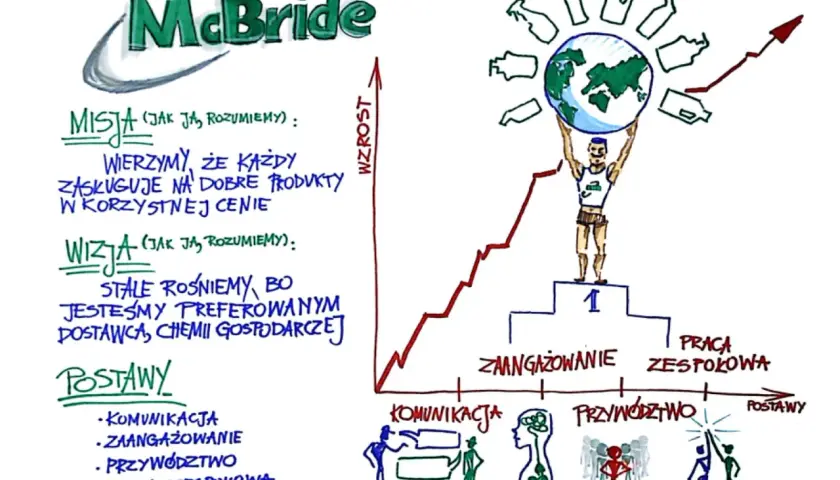 McBride
MISJA (JAK JĄ ROZUMIEMY) :
WIERZYMY, ŻE KAŻDY
ZASŁUGUJE NA DOBRE PRODUKTY
W KORZYSTNEJ CENIE
WIZJA (JAK JĄ ROZUMIEMY) :
STALE ROŚNIEMY, BO
JESTEŚMY PREFEROWANYM
DOSTAWCĄ CHEMII GOSPODARCZEJ
POSTAWY
• KOMUNIKACJA
• ZAANGAŻOWANIE
• PRZYWÓDZTWO
WZROST
1
ZAANGAŻOWANIE
PRACA
ZESPOŁOWA
KOMUNIKACJA
PRZYWÓDZTWO
POSTAWY